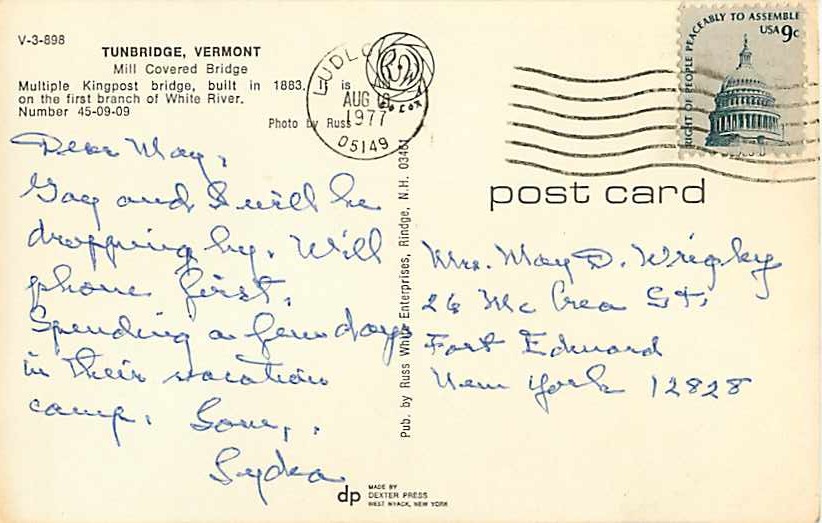 V-3-898
TUNBRIDGE, VERMONT
Mill Covered Bridge
Multiple Kingpost bridge, built in 1883. It is
on the first branch of White River.
Number 45-09-09
Photo by Russ
LUDLO
AUG 16
1977
05149
RW
COLOR
RIGHT OF PEOPLE PEACEABLY TO ASSEMBLE
USA 9c
post card
Dear May,
Gay and I will be
dropping by. Will
phone first.
Spending a few days
in their vacation
camp. Love,
Lydia
Pub. by Russ White Enterprises, Rindge, N.H. 03461
Mrs. May D. Wrigley
26 Mc Crea St.
Fort Edward
New York 12828
dp
MADE BY
DEXTER PRESS
WEST NYACK, NEW YORK